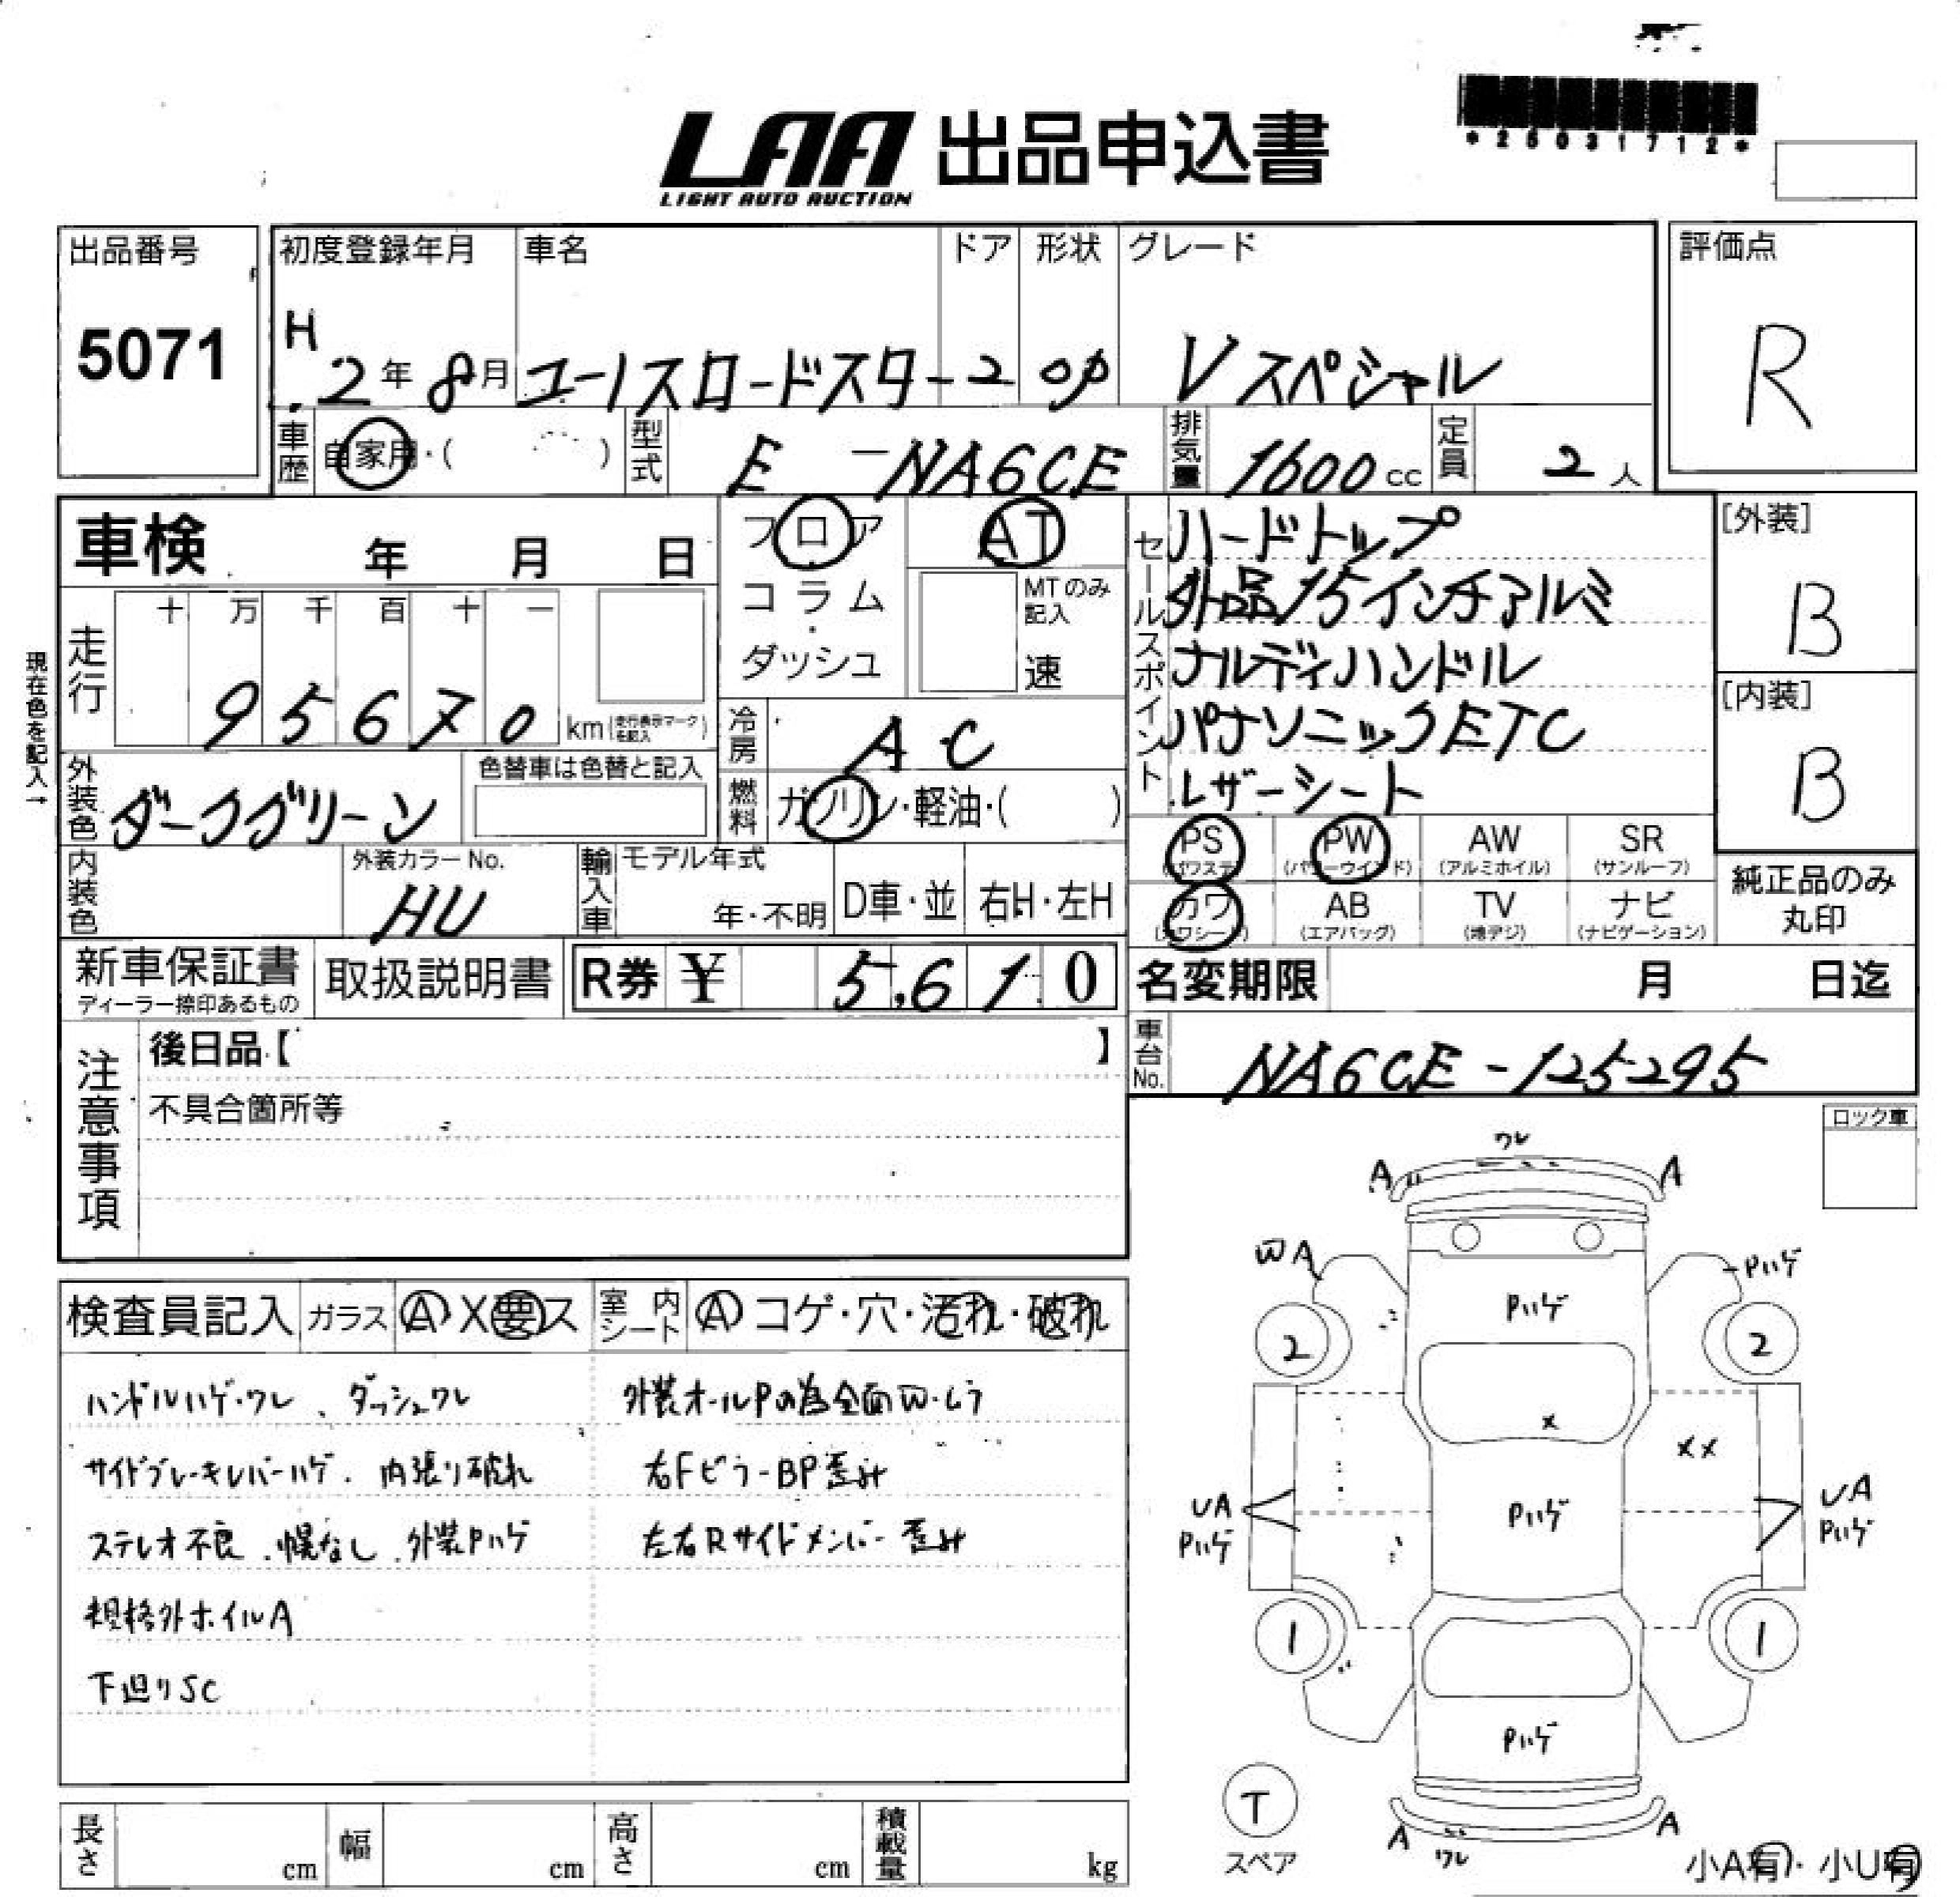 LAA 出品申込書
LIGHT AUTO AUCTION
*25031712*
出品番号
5071
初度登録年月
H.2年8月
車名
ユーノスロードスター
ドア
2
形状
OP
グレード
Vスペシャル
評価点
R
車歴
自家用・( )
型式
E-NA6CE
排気量
1600cc
定員
2人
車検 年 月 日
フロア
コラム
・
ダッシュ
AT
MTのみ
記入
速
セールスポイント
ハードトップ
外品15インチアルミ
ナルディハンドル
パナソニックETC
レザーシート
[外装]
B
[内装]
B
現在色を記入→
走行
十 万 千 百 十 一
95670
km(走行表示マークを記入)
冷房
AC
燃料
ガソリン・軽油・( )
外装色
ダークグリーン
色替車は色替と記入
内装色
外装カラーNo.
HU
輸入車
モデル年式
年・不明
D車・並
右H・左H
PS
(パワステ)
PW
(パワーウインド)
AW
(アルミホイル)
SR
(サンルーフ)
カワ
(カワシート)
AB
(エアバッグ)
TV
(地デジ)
ナビ
(ナビゲーション)
純正品のみ
丸印
新車保証書
ディーラー捺印あるもの
取扱説明書
R券 ¥ 5,610
名変期限 月 日迄
車台No.
NA6CE-125295
注意事項
後日品【 】
不具合箇所等
ロック車
検査員記入
ガラス
A X 要 ス
室内
シート
A コゲ・穴・汚れ・破れ
ハンドルハゲ・ワレ、ダッシュワレ
サイドブレーキレバーハゲ.内張り破れ
ステレオ不良.幌なし.外装Pハゲ
規格外ホイルA
下廻りSC
外装オールPの為全面W・ムラ
右Fピラー BP歪み
左右Rサイドメンバー歪み
ワレ
A
A
WA
Pハゲ
Pハゲ
2
2
X
XX
UA
Pハゲ
Pハゲ
UA
Pハゲ
1
1
Pハゲ
T
スペア
A
ワレ
A
小A有・小U有
長さ cm
幅 cm
高さ cm
積載量 kg